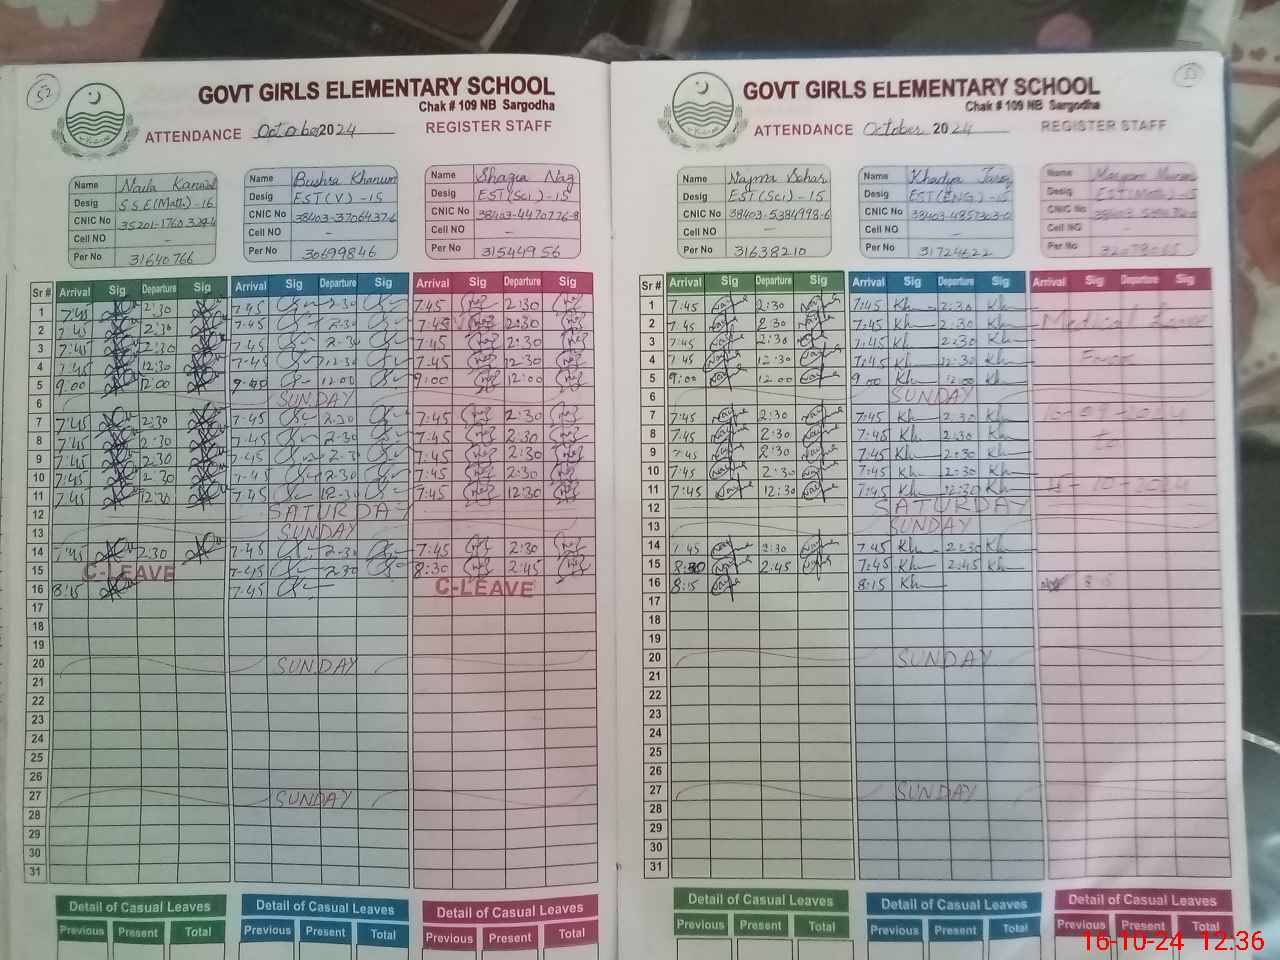 52
GOVT GIRLS ELEMENTARY SCHOOL
Chak # 109 NB Sargodha
ATTENDANCE October 2024 REGISTER STAFF
Name Naila Kanwal
Desig S.S.E(Math)-16
CNIC No
Cell NO -
Per No 31640766
Name Bushra Khanum
Desig EST(V)-15
CNIC No 38403-3706437-6
Cell NO -
Per No 30699846
Name Shazia Naz
Desig EST(Sci)-15
CNIC No 38403-4470776-8
Cell NO -
Per No 31544956
Sr # Arrival Sig Departure Sig Arrival Sig Departure Sig Arrival Sig Departure Sig
1 7:45 2:30 7:45 2:30 7:45 2:30
2 7:45 2:30 7:45 2:30 7:45 2:30
3 7:45 2:30 7:45 2:30 7:45 2:30
4 7:45 12:30 7:45 12:30 7:45 12:30
5 9:00 12:00 12:00 9:00 12:00
6 SUNDAY
7 7:45 2:30 7:45 2:30 7:45 2:30
8 7:45 2:30 7:45 2:30 7:45 2:30
9 7:45 2:30 7:45 2:30 7:45 2:30
10 7:45 2:30 7:45 2:30 7:45 2:30
11 7:45 12:30 7:45 12:30 7:45 12:30
12 SATURDAY
13 SUNDAY
14 7:45 2:30 7:45 2:30 7:45 2:30
15 C-LEAVE 7:45 2:30 8:30 2:45
16 8:15 7:45 C-LEAVE
17
18
19
20 SUNDAY
21
22
23
24
25
26
27 SUNDAY
28
29
30
31
Detail of Casual Leaves Detail of Casual Leaves Detail of Casual Leaves
Previous Present Total Previous Present Total Previous Present Total
53
GOVT GIRLS ELEMENTARY SCHOOL
Chak # 109 NB Sargodha
ATTENDANCE October 2024 REGISTER STAFF
Name Najma Sahar
Desig EST(Sci)-15
CNIC No 38403-5384998-6
Cell NO -
Per No 31638210
Name Khadija
Desig EST(ENG)-15
CNIC No 38403-4857303-0
Cell NO -
Per No 31724622
Name Maryam
Desig EST(Math)-15
CNIC No
Cell NO -
Per No
Sr # Arrival Sig Departure Sig Arrival Sig Departure Sig Arrival Sig Departure Sig
1 7:45 2:30 7:45 Kh 2:30 Kh
2 7:45 2:30 7:45 Kh 2:30 Kh Medical Leave
3 7:45 2:30 7:45 Kh 2:30 Kh
4 7:45 12:30 7:45 Kh 12:30 Kh From
5 9:00 12:00 9:00 Kh 12:00 Kh
6 SUNDAY
7 7:45 2:30 7:45 Kh 2:30 Kh
8 7:45 2:30 7:45 Kh 2:30 Kh to
9 7:45 2:30 7:45 Kh 2:30 Kh
10 7:45 2:30 7:45 Kh 2:30 Kh
11 7:45 12:30 7:45 Kh 12:30 Kh 15-10-2024
12 SATURDAY
13 SUNDAY
14 7:45 2:30 7:45 Kh 2:30 Kh
15 8:30 2:45 7:45 Kh 2:45 Kh
16 8:15 8:15 Kh 8:15
17
18
19
20 SUNDAY
21
22
23
24
25
26
27 SUNDAY
28
29
30
31
Detail of Casual Leaves Detail of Casual Leaves Detail of Casual Leaves
Previous Present Total Previous Present Total Previous Present Total
16-10-24 12:36